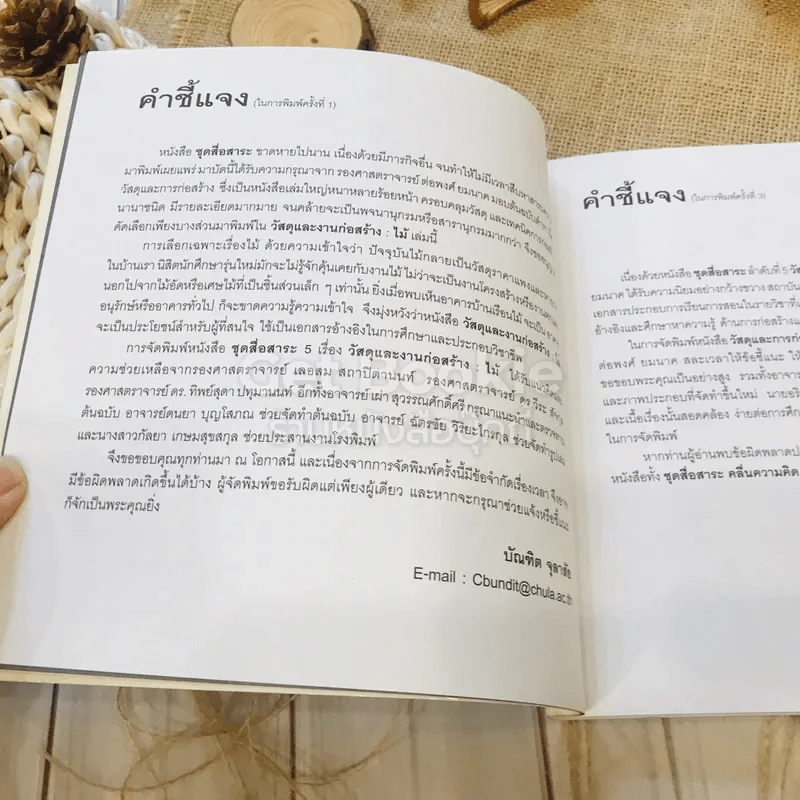 คำชี้แจง (ในการพิมพ์ครั้งที่ 1)
หนังสือ ชุดสื่อสาระ ขาดหายไปนาน เนื่องด้วยมีภารกิจอื่น จนทำให้ไม่มีเวลาสืบหาสาระ
มาพิมพ์เผยแพร่ มาบัดนี้ได้รับความกรุณาจาก รองศาสตราจารย์ ต่อพงศ์ ยมนาค มอบต้นฉบับตำรา
วัสดุและการก่อสร้าง ซึ่งเป็นหนังสือเล่มใหญ่หนาหลายร้อยหน้า ครอบคลุมวัสดุ และเทคนิคการก่อสร้าง
นานาชนิด มีรายละเอียดมากมาย จนคล้ายจะเป็นพจนานุกรมหรือสารานุกรมมากกว่า จึงขออนุญาต
คัดเลือกเพียงบางส่วนมาพิมพ์ใน วัสดุและงานก่อสร้าง : ไม้ เล่มนี้
การเลือกเฉพาะเรื่องไม้ ด้วยความเข้าใจว่า ปัจจุบันไม้กลายเป็นวัสดุราคาแพงและหายาก
ในบ้านเรา นิสิตนักศึกษารุ่นใหม่มักจะไม่รู้จักคุ้นเคยกับงานไม้ ไม่ว่าจะเป็นงานโครงสร้างหรืองานตกแต่ง
นอกไปจากไม้อัดหรือเศษไม้ที่เป็นชิ้นส่วนเล็ก ๆ เท่านั้น ยิ่งเมื่อพบเห็นอาคารบ้านเรือนไม้ จะเป็น
อนุรักษ์หรืออาคารทั่วไป ก็จะขาดความรู้ความเข้าใจ จึงมุ่งหวังว่าหนังสือ วัสดุและงานก่อสร้าง : ไม้
จะเป็นประโยชน์สำหรับผู้ที่สนใจ ใช้เป็นเอกสารอ้างอิงในการศึกษาและประกอบวิชาชีพ
การจัดพิมพ์หนังสือ ชุดสื่อสาระ 5 เรื่อง วัสดุและงานก่อสร้าง : ไม้ ได้รับ
ความช่วยเหลือจากรองศาสตราจารย์ เลอสม สถาปิตานนท์ รองศาสตราจารย์ ดร.วีระ
รองศาสตราจารย์ ดร. ทิพย์สุดา ปทุมานนท์ อีกทั้งอาจารย์ เผ่า สุวรรณศักดิ์ศรี กรุณาแนะนำและตรวจทาน
ต้นฉบับ อาจารย์ดนยา บุญโสภณ ช่วยจัดทำต้นฉบับ อาจารย์ ฉัตรชัย วิริยะไกรกุล ช่วยจัดทำรูปเล่ม
และนางสาวกัลยา เกษมสุขสกุล ช่วยประสานงานโรงพิมพ์
จึงขอขอบคุณทุกท่านมา ณ โอกาสนี้ และเนื่องจากการจัดพิมพ์ครั้งนี้มีข้อจำกัดเรื่องเวลา จึงอาจ
มีข้อผิดพลาดเกิดขึ้นได้บ้าง ผู้จัดพิมพ์ขอรับผิดแต่เพียงผู้เดียว และหากจะกรุณาช่วยแจ้งหรือชี้แนะ
ก็จักเป็นพระคุณยิ่ง
บัณฑิต จุลาสัย
E-mail : Cbundit@chula.ac.th
คำชี้แจง (ในการพิมพ์ครั้งที่ 3)
เนื่องด้วยหนังสือ ชุดสื่อสาระ ลำดับที่ 5
ยมนาค ได้รับความนิยมอย่างกว้างขวาง สถาบัน
เอกสารประกอบการเรียนการสอนในรายวิชาที่
อ้างอิงและศึกษาหาความรู้ ด้านการก่อสร้าง
ในการจัดพิมพ์หนังสือ วัสดุและการ
ต่อพงศ์ ยมนาค สละเวลาให้ข้อชี้แนะ
ขอขอบพระคุณเป็นอย่างสูง รวมทั้งอาจาร
และภาพประกอบที่จัดทำขึ้นใหม่ นาย
และเนื้อเรื่องนั้นสอดคล้อง ง่ายต่อการศึก
ในการจัดพิมพ์
หากท่านผู้อ่านพบข้อผิดพลาด
หนังสือทั้ง ชุดสื่อสาระ คลื่นความคิด
Get Bookie
ร้านหนังสือบุ๊คกี้